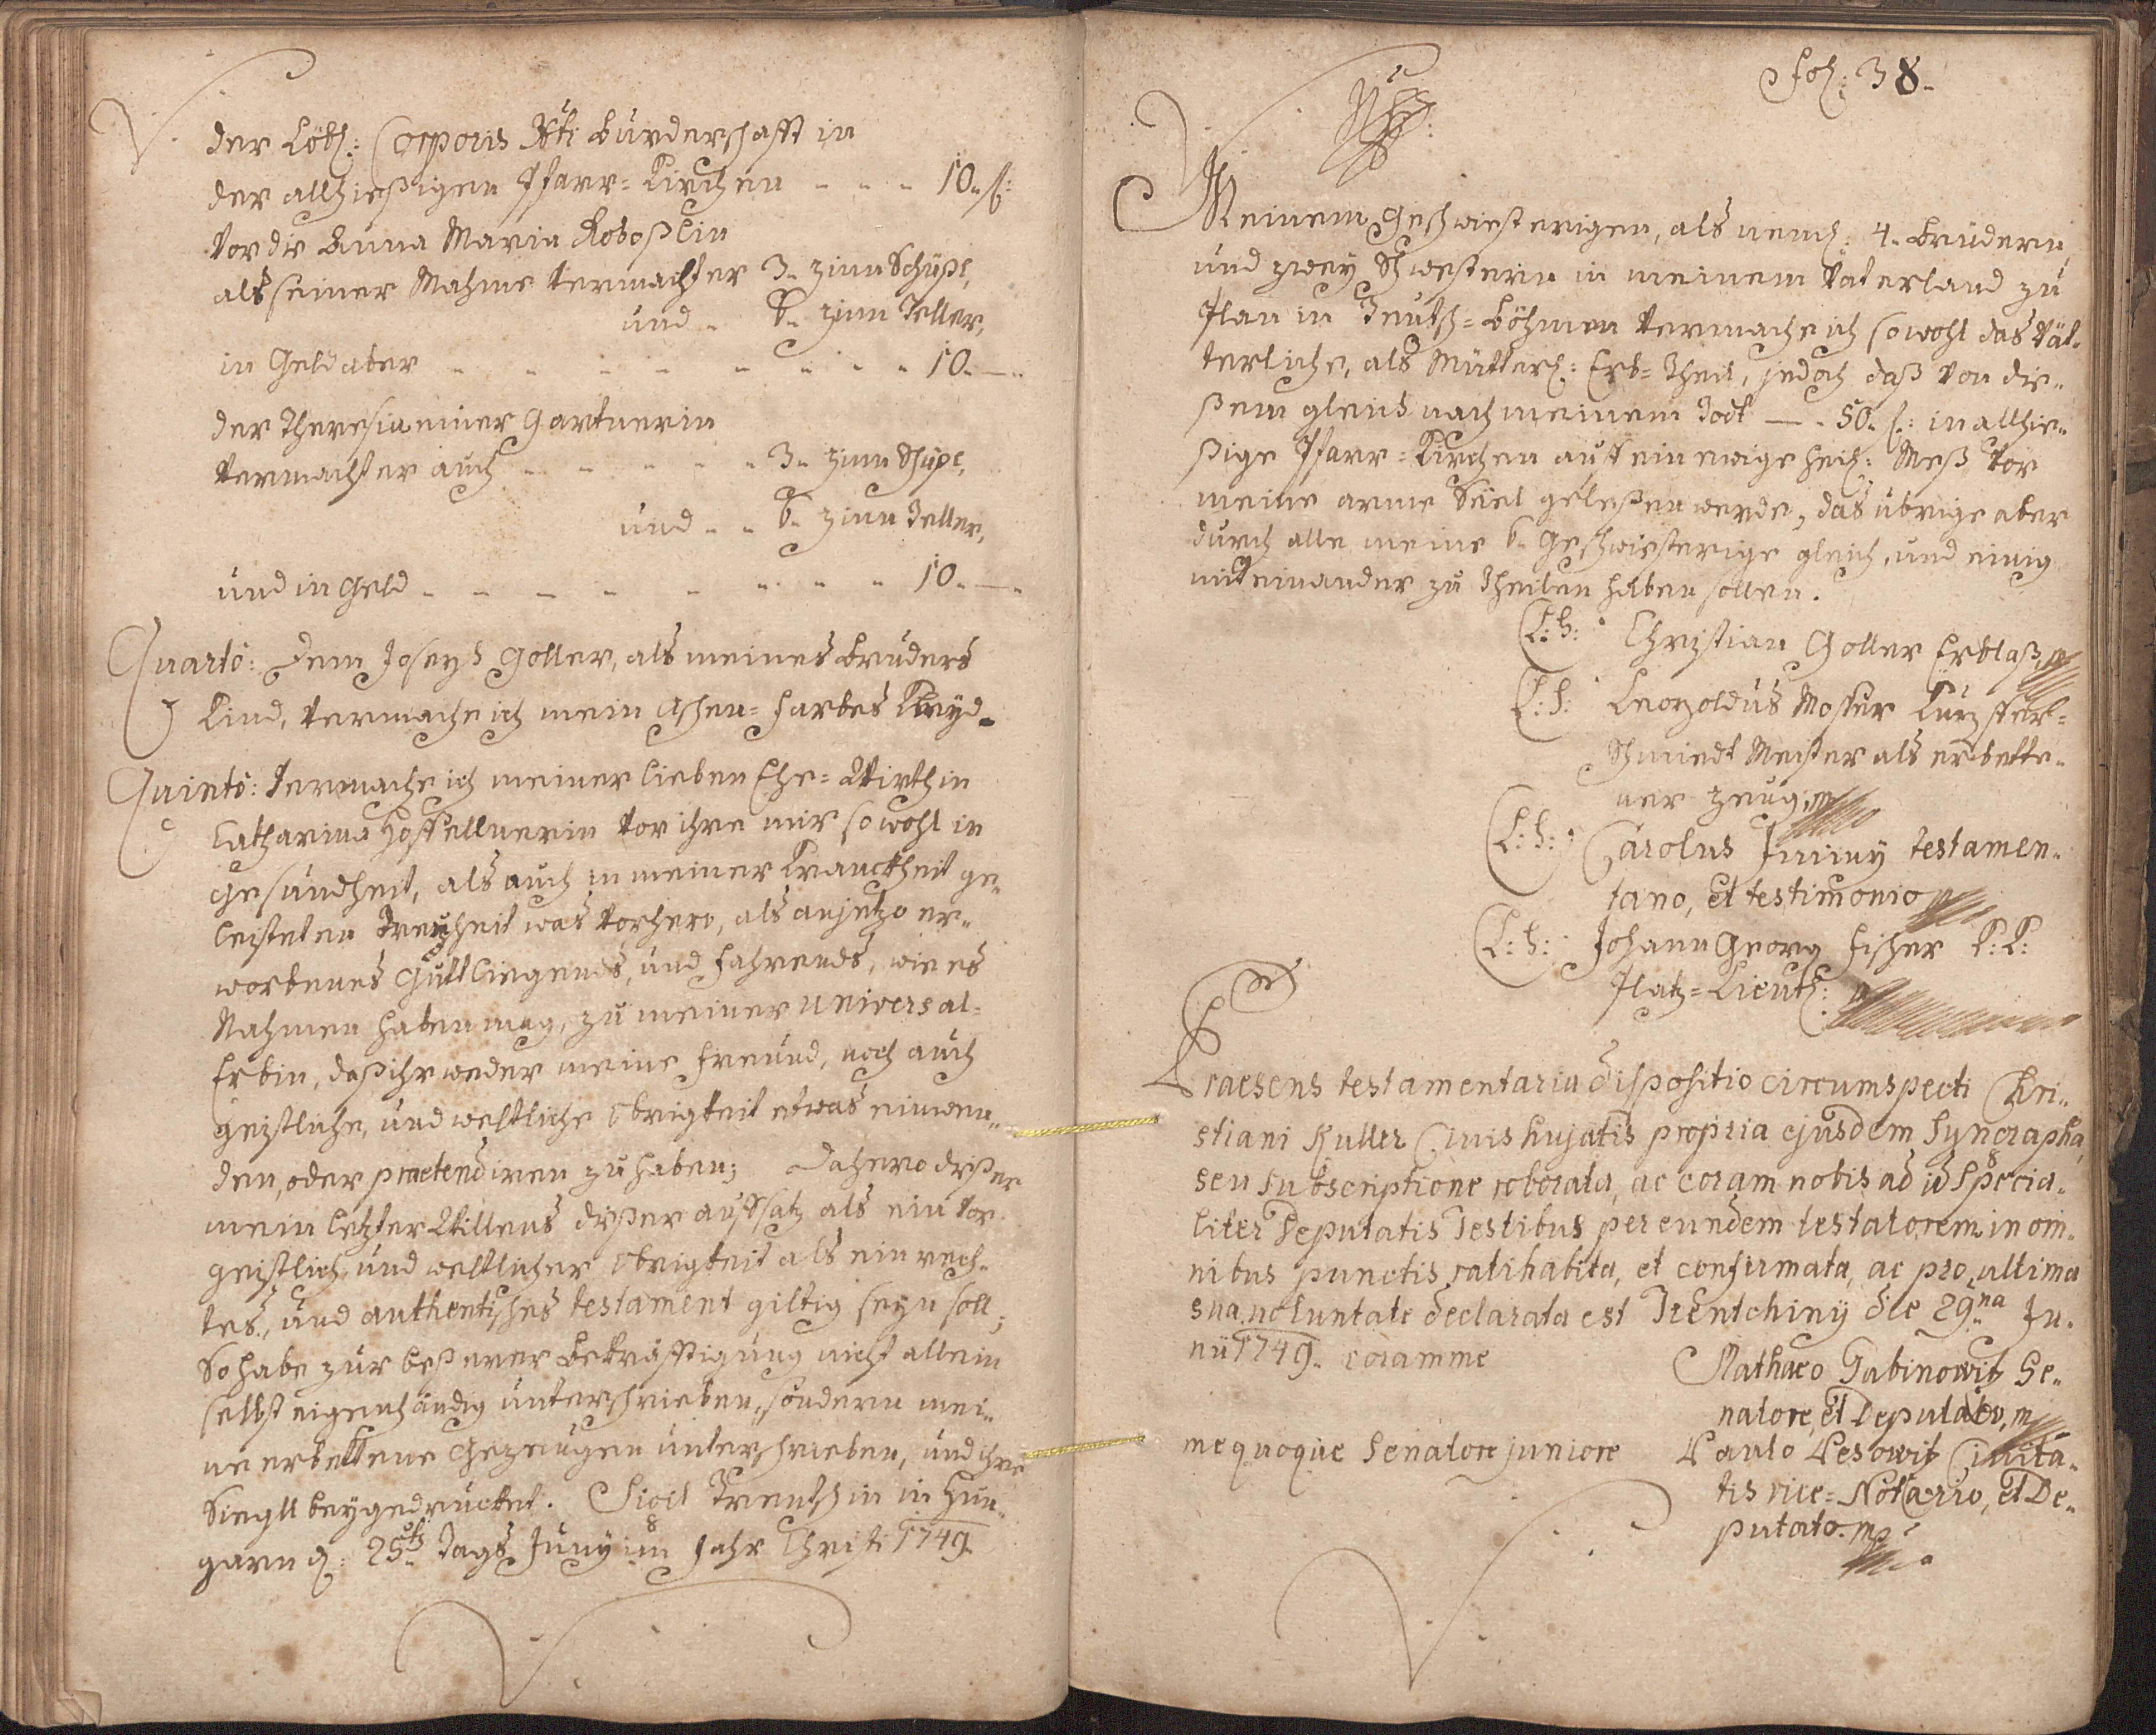 der Löbl: Corporis Xti Burderschafft in
der allhießigen Pfarr=Kirchen - - - 10. f:
Vor die Anna Maria
als seiner Mahme vermachter 3. zinn Schüßl,
und - 6. zinn Teller,
in Geld aber - - - - - - - 10. —
der Theresia einer Gartnerin
vermachter auch - - - - - 3. zinn Schüßl,
und - - 6. zinn Teller,
und in Geld - - - - - - - - 10. —
Quartò: Dem Joseph Goller, als meines Bruders
Kind, vermache ich mein Aschen=farbes Kleyd.
Quintò: Vermache ich meiner lieben Ehe=Wirthin
Catharina Hoffellnerin vor ihre mir sowohl in
Gesundheit, als auch in meiner Kranckheit ge„
leisteten Treyheit was vorhero, als anjetzo er„
worbenes Gutt liegends, und fahrends, wie es
Nahmen haben mag, zu meiner Universal=
Erbin, daß ihr weder meine Freund, noch auch
geistliche, und weltliche Obrigkeit etwas einwen„
den, oder praetendiren zu haben; Dahero dißer
mein letzter Willens dißer auffsatz als ein vor
geistlich, und weltlicher Obrigkeit als ein rech„
tes, und authentisches testament giltig seyn soll;
So habe zur beßerer Bekräfftigung nicht allein
selbst eigenhändig unterschrieben, sondern mei„
ne erbettene Gezeugen unterschrieben, und ihre
Siegll beygedrucket. Sigl Trentschin in Hun„
garn d: 25ten Tags Juny im Jahr Christi 1749.
Fol: 38.
Meinem Geschwiesterigen, als nemb: 4. Brüdern,
und zwey Schwestern in meinem Vaterland zu
Plan in Teutsch=Böhmen vermache ich sowohl das Vät„
terliche, als Mütterl: Erb=Theil, jedoch daß von die„
ßem gleich nach meinem Todt — . 50. f: in allhie„
ßige Pfarr=Kirchen auff ein ewige heil: Meß vor
meine arme Seel geleßen werde, das übrige aber
durch alle meine 6. Geschwiesterige gleich, und einig
miteinander zu Theilen haben sollen.
L:S: Christian Goller Erblaß. mp
L:S: Leopoldus Moßer
Schmiedt Meister als erbette„
ner Zeug. mp
L:S: Carolus Jminy testamen„
tano, et testimonio mp
L:S: Johann Georg Fischer K:K:
Platz=Lieut: mp
Praesens testamentaria dispositio circumspecti Chri„
stiani Kuller Civis hujatis propria ejusdem Syngrapha,
seu subscriptione roborata, ac coram nobis ad id specia„
liter Deputatis Testibus per eundem testatorem in om„
nibus punctis ratihabita, et confirmata, ac pro ultima
sua voluntate declarata est Trentchiny die 29na Ju„
nii 1749. coram me
Mathaeo Gabinowitz Se„
natore, et Deputato, mp
me quoque Senatore juniore Paulo Lesowitz Civita„
tis vice=Notario, et De„
putato. mp